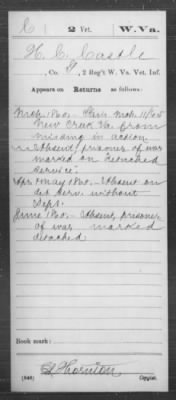 C | 2 Vet. | W. Va.
H. C. Castle
, Co. G, 2 Reg't W. Va. Vet. Inf.
Appears on
Returns as follows:
Mch 1865 - Mch. 11/65
New Creek Va. from
missing in action
Absent, prisoner of war
marked on detached
service.
Apr & May 1865 - Absent on
det serv. without
Dept.
June 1865 - Absent, prisoner
of war marked
detached
Book mark:
Thornton
(546) Copyist.